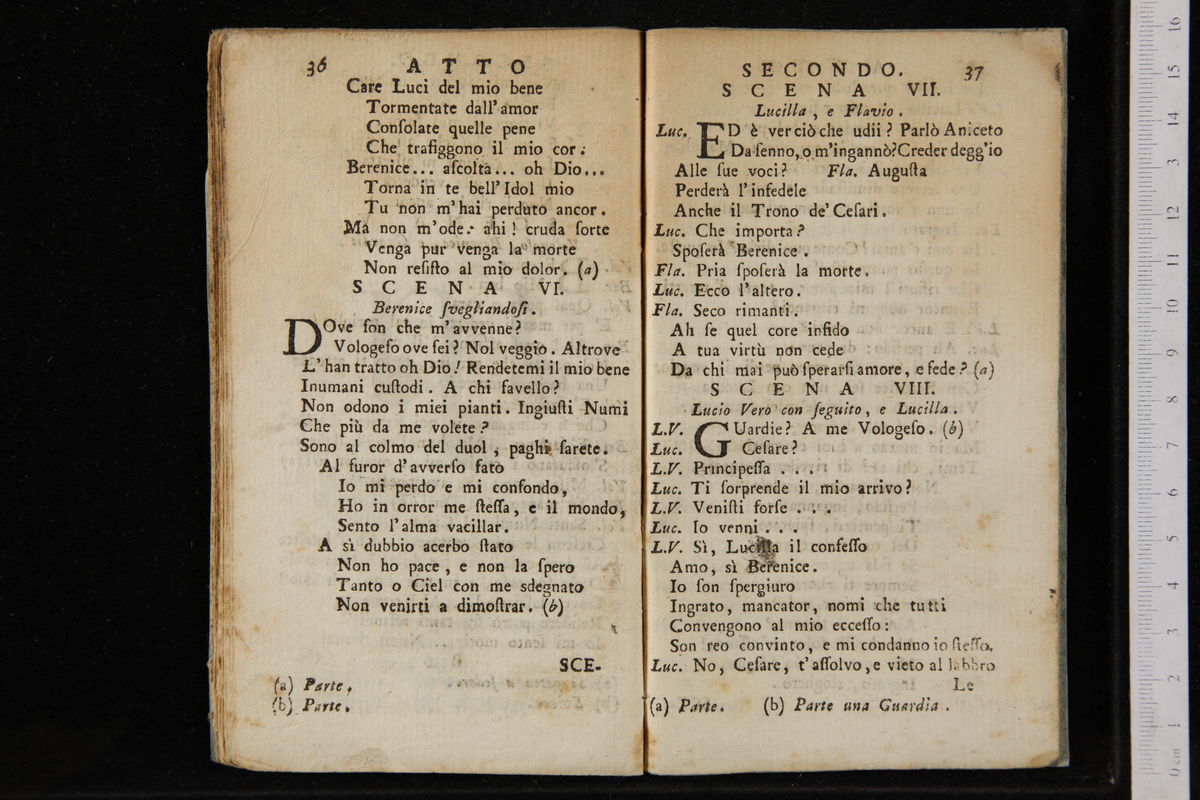 36 ATTO
Care Luci del mio bene
Tormentate dall'amor
Conſolate quelle pene
Che trafiggono il mio cor.
Berenice... aſcolta... oh Dio...
Torna in te bell'Idol mio
Tu non m'hai perduto ancor.
Ma non m'ode: ahi! cruda ſorte
Venga pur venga la morte
Non reſiſto al mio dolor. (a)
SCENA VI.
Berenice ſvegliandoſi.
DOve ſon che m'avvenne?
Vologeſo ove ſei? Nol veggio. Altrove
L'han tratto oh Dio! Rendetemi il mio bene
Inumani cuſtodi. A chi favello?
Non odono i miei pianti. Ingiuſti Numi
Che più da me volete?
Sono al colmo del duol, paghi ſarete.
Al furor d'avverſo fato
Io mi perdo e mi confondo,
Ho in orror me ſteſſa, e il mondo,
Sento l'alma vacillar.
A sì dubbio acerbo ſtato
Non ho pace, e non la ſpero
Tanto o Ciel con me sdegnato
Non venirti a dimoſtrar. (b)
SCE-
(a) Parte.
(b) Parte.
SECONDO. 37
SCENA VII.
Lucilla, e Flavio.
Luc. ED è ver ciò che udii? Parlò Aniceto
Da ſenno, o m'ingannò? Creder degg'io
Alle ſue voci? Fla. Auguſta
Perderà l'infedele
Anche il Trono de' Ceſari.
Luc. Che importa?
Spoſerà Berenice.
Fla. Pria ſpoſerà la morte.
Luc. Ecco l'altero.
Fla. Seco rimanti.
Ah ſe quel core infido
A tua virtù non cede
Da chi mai può ſperarſi amore, e fede? (a)
SCENA VIII.
Lucio Vero con ſeguito, e Lucilla.
L.V. GUardie? A me Vologeſo. (b)
Luc. Ceſare?
L.V. Principeſſa . . . .
Luc. Ti ſorprende il mio arrivo?
L.V. Veniſti forſe . . .
Luc. Io venni . . .
L.V. Sì, Lucilla il confeſſo
Amo, sì Berenice.
Io ſon ſpergiuro
Ingrato, mancator, nomi che tutti
Convengono al mio ecceſſo:
Son reo convinto, e mi condanno io ſteſſo.
Luc. No, Ceſare, t'aſſolvo, e vieto al labbro
Le
(a) Parte. (b) Parte una Guardia.
0 cm 1 2 3 4 5 6 7 8 9 10 11 12 13 14 15 16